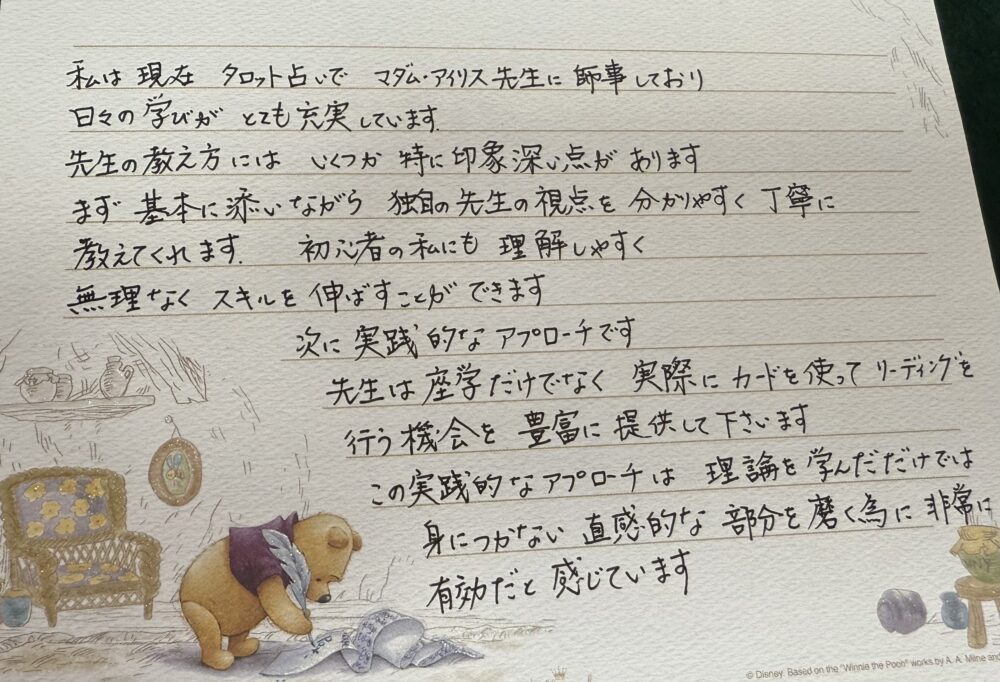 私は 現在 タロット占いで マダム・アイリス先生に 師事しており
日々の学びが とても充実しています.
先生の教え方には いくつか 特に印象深い点が あります
まず 基本に添いながら 独自の先生の視点を 分かりやすく丁寧に
教えてくれます. 初心者の私にも 理解しやすく
無理なく スキルを伸ばすことが できます
次に 実践的な アプローチです
先生は 座学だけでなく 実際に カードを使って リーディングを
行う機会を 豊富に 提供して下さいます
この実践的なアプローチは 理論を学んだだけでは
身につかない 直感的な 部分を磨く為に 非常に
有効だと 感じています
© Disney. Based on the "Winnie the Pooh" works by A. A. Milne and